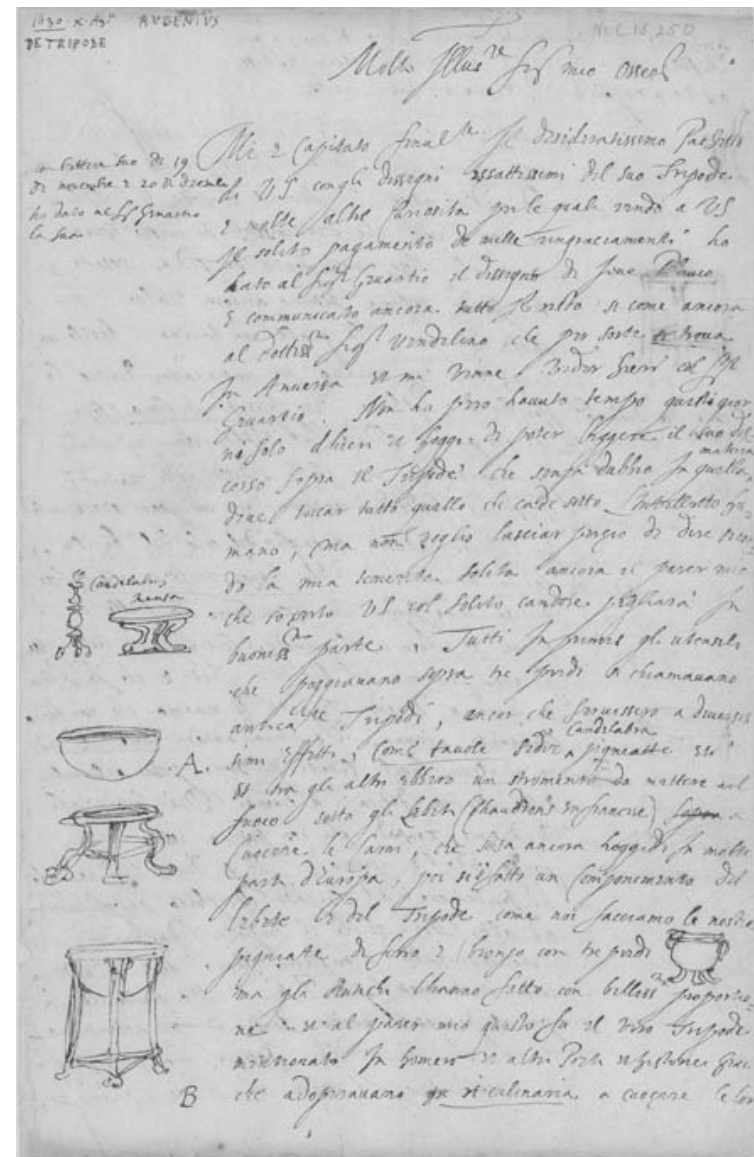 1630 X. Agti RVBENIVS
DE TRIPODE
N.L. 15,250
Molto Illusre Sigr mio Ossermo
con lettera sua di 19
di novembre e 20 di dicembre
ho dato al Sigr Gevartio
la sua
Mi è capitato finalte il desideratissimo Pachetto
di VS con gli dissegni essattissimi del suo Tripode
e molte altre curiosita per le quale rendo a VS
il solito pagamento de mille ringraciamenti ho
dato al Sigr Gevartio il dissegno di Jove Pluvio
e communicato ancora tutto il resto si come ancora
al dottissmo Sigr Vendelino che per sorte si trova
in Anversa et mi venne veder hieri col Sigr
Gevartio. Non ho però havuto tempo questi gior
ni solo d'hieri et hoggi di poter leggere il suo dis
corso sopra il Tripode che senza dubbio in quella materia
deve toccar tutto quello che cade sotto intelletto hu-
mano, ma non voglio lasciar perciò di dire secon
do la mia temerita solita ancora il parer mio
che io certo VS col solito candore pigliarà in
bonissma parte. Tutti in primis gli utensili
che poggiavano sopra tre piedi si chiamavano
anticamte Tripodi, ancor che servissero a diversis
simi effetti, come tavole sedie Candelabra pignatte et
et tra gli altri ebbero un stromento da mettere nel
fuoco sotto gli Lebeti (Chaudron en francese)
cuocere le carni, che s'usa ancora hoggidi in molte
parti d'Europa, poi si è fatto un componimento del
Lebete et del Tripode come noi facciamo le nostre
pignatte di ferro e bronzo con tre piedi
ma gli Antichi l'hanno fatto con bellissma proportio
ne et al parer mio questo fu il vero Tripode
mentionato in Homero et altri Poeti et historici Greci
che adopravano in re culinaria a cuocere le car
Candelabrum
Mensa
A.
B